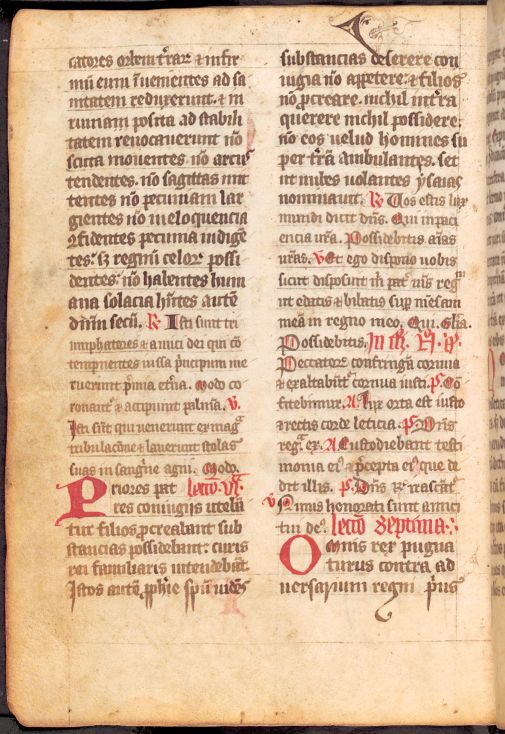 catores orbem t̄rar⁊ ⁊ infir
mū eum īuenientes ad sa
nitatem reduxerunt. ⁊ in
ruinam posita ad stabili
tatem reuocauerunt nō
scuta mouentes. nō arcus
tendentes. nō sagittas mit
tentes nō pecuniam lar
gientes nō in eloquencia
ꝯfidentes pecunia indigē
tes. sꝫ regni celor⁊ possi
dentes. nō habentes hum
ana solacia hn̄tes autē
dn̄m secū. R Isti sunt tri
umphatores ⁊ amici dei qui cō
tempnentes iussa pͥncipum me
ruerunt pͥmia et̄na. Modo co
ronant᷑ ⁊ accipiunt palmā. V.
Isti sūt qui uenerunt ex mag̃
tribulacōne ⁊ lauerunt stolas
suas in sangīne agni. Modo.
Priores pat lectō .vi.
res coniugijs utebā
tur filios ꝓcreabant sub
stancias possidebant: curis
rei familiaris intendebāt.
Istos autē ꝓph̄ie spū uidēs
substancias deserere con
iugia nō appetere. ⁊ filios
nō ꝓcreare. nichil in t̄ra
querere nichil possidere.
nō eos uelud homines su
per t̄rā ambulantes. set
ut niles uolantes ysaias
nominauit. R Uos estis lux
mundi dicit dn̄s. Qui in paci
encia ur̄a. Possidebitis aīas
ur̄as. V Et ego dispono uobis
sicut disposuit m̄ pat᷑ ms̄ regᷠ
ut edatis ⁊ bibatis suꝑ mēsam
meā in regno meo. Qui. Gl̄ia.
Possidebitis.
Peccator⁊ confringā cornua
⁊ exaltabūt᷑ cornua iusti. P. Cō
fitebimur. A. Lux orta est iusto
⁊ rectis corde leticia. P. Dn̄s
reg̃. ex. A. Custodiebant testi
monia ei᷒ ⁊ p̄cepta ei᷒ que de
dit illis. P. Dn̄s R irascāt᷑.
V Nimis honorati sunt amici
tui de᷒. lectō Septima.
Omnis rex pugna
turus contra ad
uersarium regni pͥus